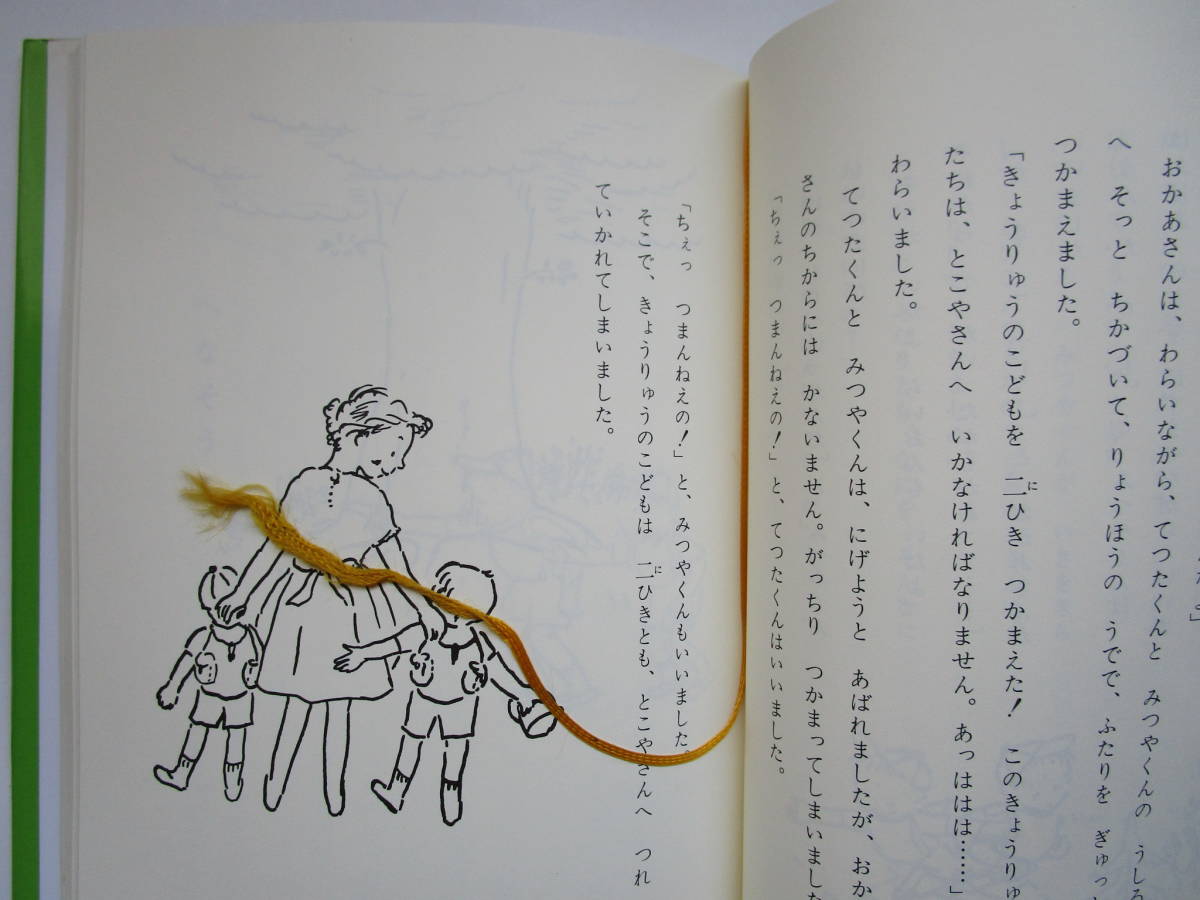 おかあさんは、わらいながら、てつたくんと みつやくんの うしろ
へ そっと ちかづいて、りょうほうの うでで、ふたりを ぎゅっ
つかまえました。
「きょうりゅうのこどもを 二ひき つかまえた! このきょうりゅ
たちは、とこやさんへ いかなければなりません。あっははは……」
わらいました。
てつたくんと みつやくんは、にげようと あばれましたが、おか
さんのちからには かないません。がっちり つかまってしまいました
「ちぇっ つまんねえの!」と、てつたくんはいいました。
「ちぇっ つまんねえの!」と、みつやくんもいいました。
そこで、きょうりゅうのこどもは 二ひきとも、とこやさんへ つれ
ていかれてしまいました。